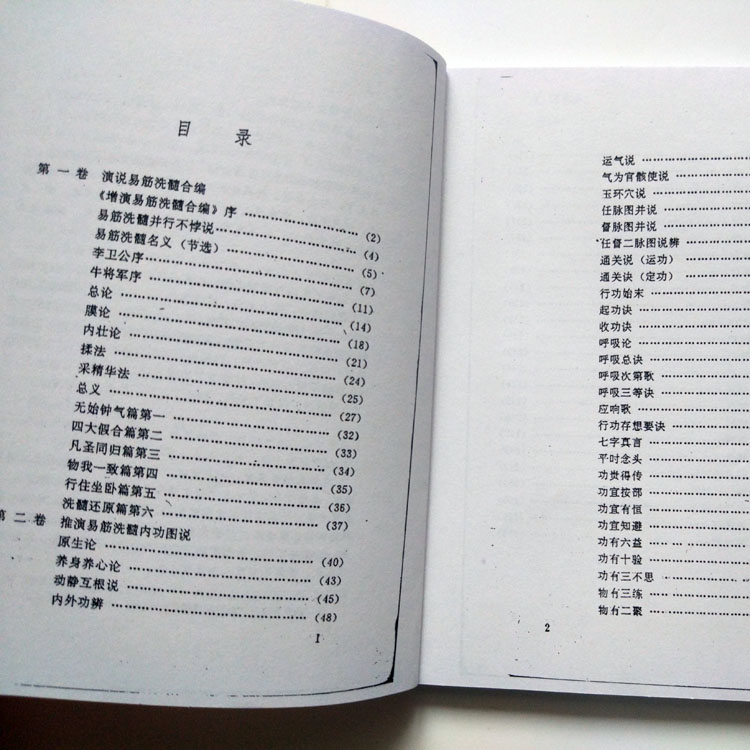 目 录
第一卷 演说易筋洗髓合编
《增演易筋洗髓合编》序 ……………… (2)
易筋洗髓并行不悖说 ……………… (4)
易筋洗髓名义（节选） ……………… (5)
李卫公序 ……………… (7)
牛将军序 ……………… (11)
总论 ……………… (14)
膜论 ……………… (18)
内壮论 ……………… (21)
揉法 ……………… (24)
采精华法 ……………… (25)
总义 ……………… (27)
无始钟气篇第一 ……………… (32)
四大假合篇第二 ……………… (33)
凡圣同归篇第三 ……………… (34)
物我一致篇第四 ……………… (35)
行住坐卧篇第五 ……………… (36)
洗髓还原篇第六 ……………… (37)
第二卷 推演易筋洗髓内功图说
原生论 ……………… (40)
养身养心论 ……………… (43)
动静互根说 ……………… (45)
内外功辨 ……………… (48)
I
运气说 ………………
气为官骸使说 ………………
玉环穴说 ………………
任脉图并说 ………………
督脉图并说 ………………
任督二脉图说辨 ………………
通关说（运功） ………………
通关诀（定功） ………………
行功始末 ………………
起功诀 ………………
收功诀 ………………
呼吸论 ………………
呼吸总诀 ………………
呼吸次第歌 ………………
呼吸三等诀 ………………
应响歌 ………………
行功存想要诀 ………………
七字真言 ………………
平时念头 ………………
功贵得传 ………………
功宜按部 ………………
功宜有恒 ………………
功宜知避 ………………
功有六益 ………………
功有十验 ………………
功有三不思 ………………
物有三练 ………………
物有二聚 ………………
2